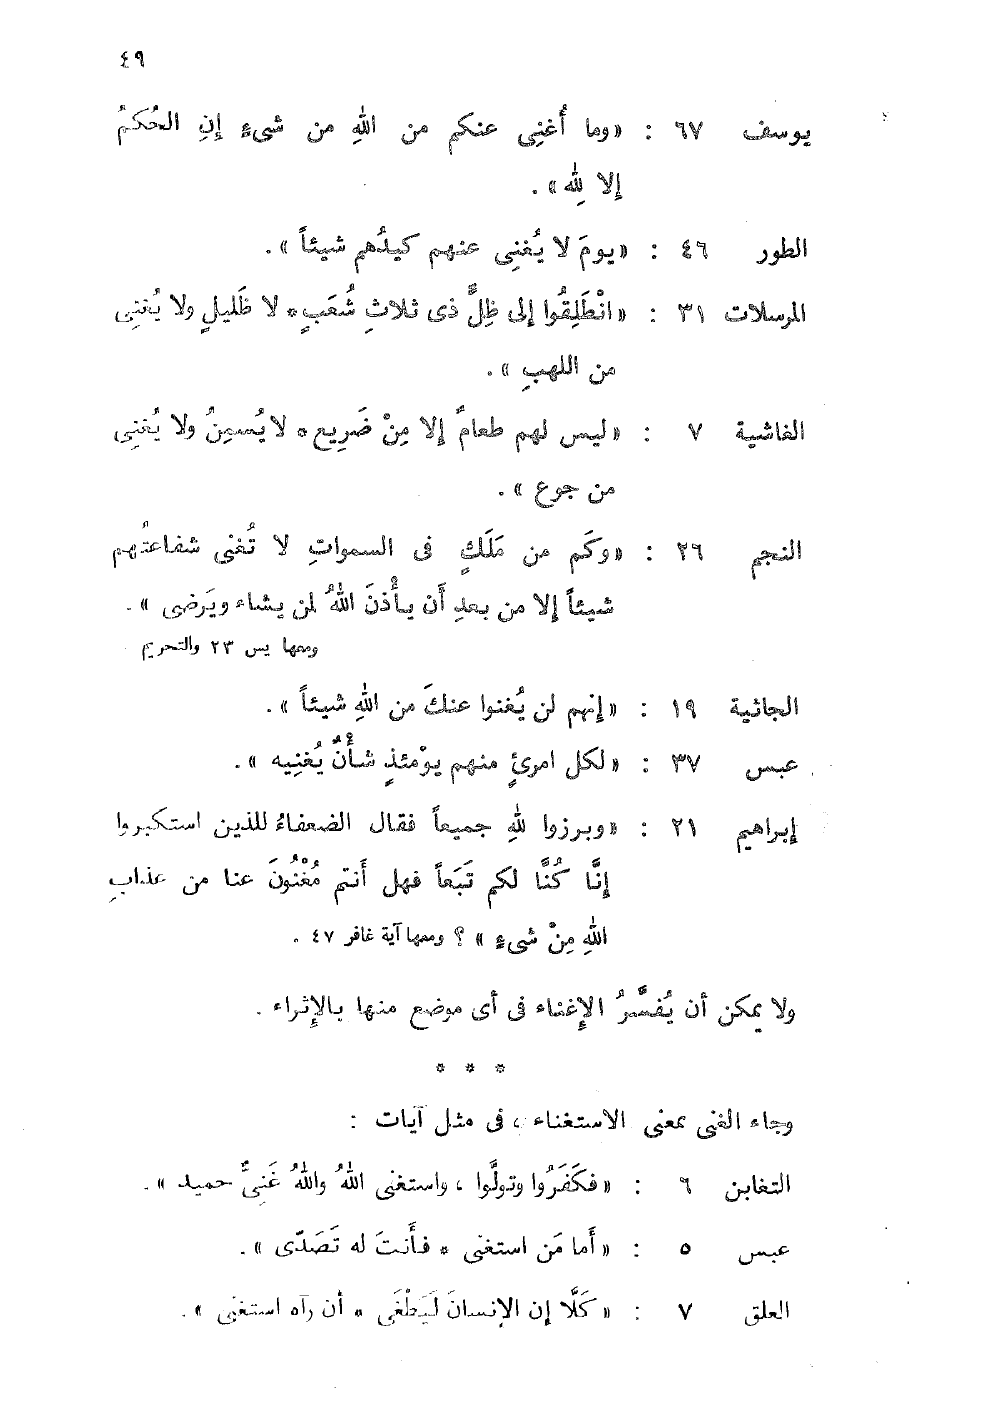 ٤٩
يوسف ٦٧ : «وما أُغنِى عنكم من اللهِ من شىءٍ إنِ الحُكمُ
إلا لِله» .
الطور ٤٦ : «يومَ لا يُغنِى عنهم كيدُهم شيئاً» .
المرسلات ٣١ : «انْطَلِقُوا إلى ظِلٍّ ذى ثلاثِ شُعَبٍ * لا ظَليلٍ ولا يُغنِى
من اللهبِ» .
الغاشية ٧ : «ليس لهم طعامٌ إلا مِنْ ضَرِيع * لا يُسمِنُ ولا يُغنِى
من جوع» .
النجم ٢٦ : «وكَم من مَلَكٍ فى السمواتِ لا تُغنى شفاعتُهم
شيئاً إلا من بعدِ أَن يأْذنَ اللهُ لمن يشاء ويَرضى» .
ومعها يس ٢٣ والتحريم
الجاثية ١٩ : «إنهم لن يُغنوا عنكَ من اللهِ شيئاً» .
عبس ٣٧ : «لكل امرئٍ منهم يوْمئذٍ شأْنٌ يُغنِيه» .
إبراهيم ٢١ : «وبرزوا للهِ جميعاً فقال الضعفاءُ للذين استكبروا
إنَّا كُنَّا لكم تَبَعاً فهل أَنتم مُغْنُونَ عنا من عذابِ
اللهِ مِنْ شىءٍ» ؟ ومعها آية غافر ٤٧ .
ولا يمكن أن يُفسَّرُ الإغناء فى أى موضع منها بالإثراء .
* * *
وجاء الغنى بمعنى الاستغناء ، فى مثل آيات :
التغابن ٦ : «فكَفَرُوا وتولَّوا ، واستغنى اللهُ واللهُ غَنِىٌّ حميد» .
عبس ٥ : «أَما مَن استغنى * فأَنتَ له تَصَدّى» .
العلق ٧ : «كَلَّا إن الإنسانَ لَيَطْغَى * أن رآه استغنى» .